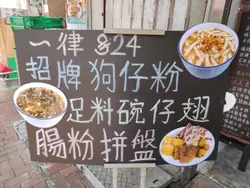 一律 $24
招牌狗仔粉
足料碗仔翅
腸粉拼盤